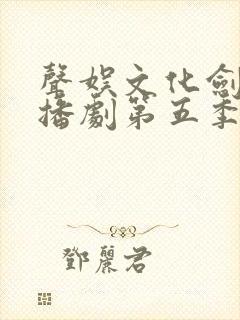 聲娛文化劍
播劇第五季
鄧麗君